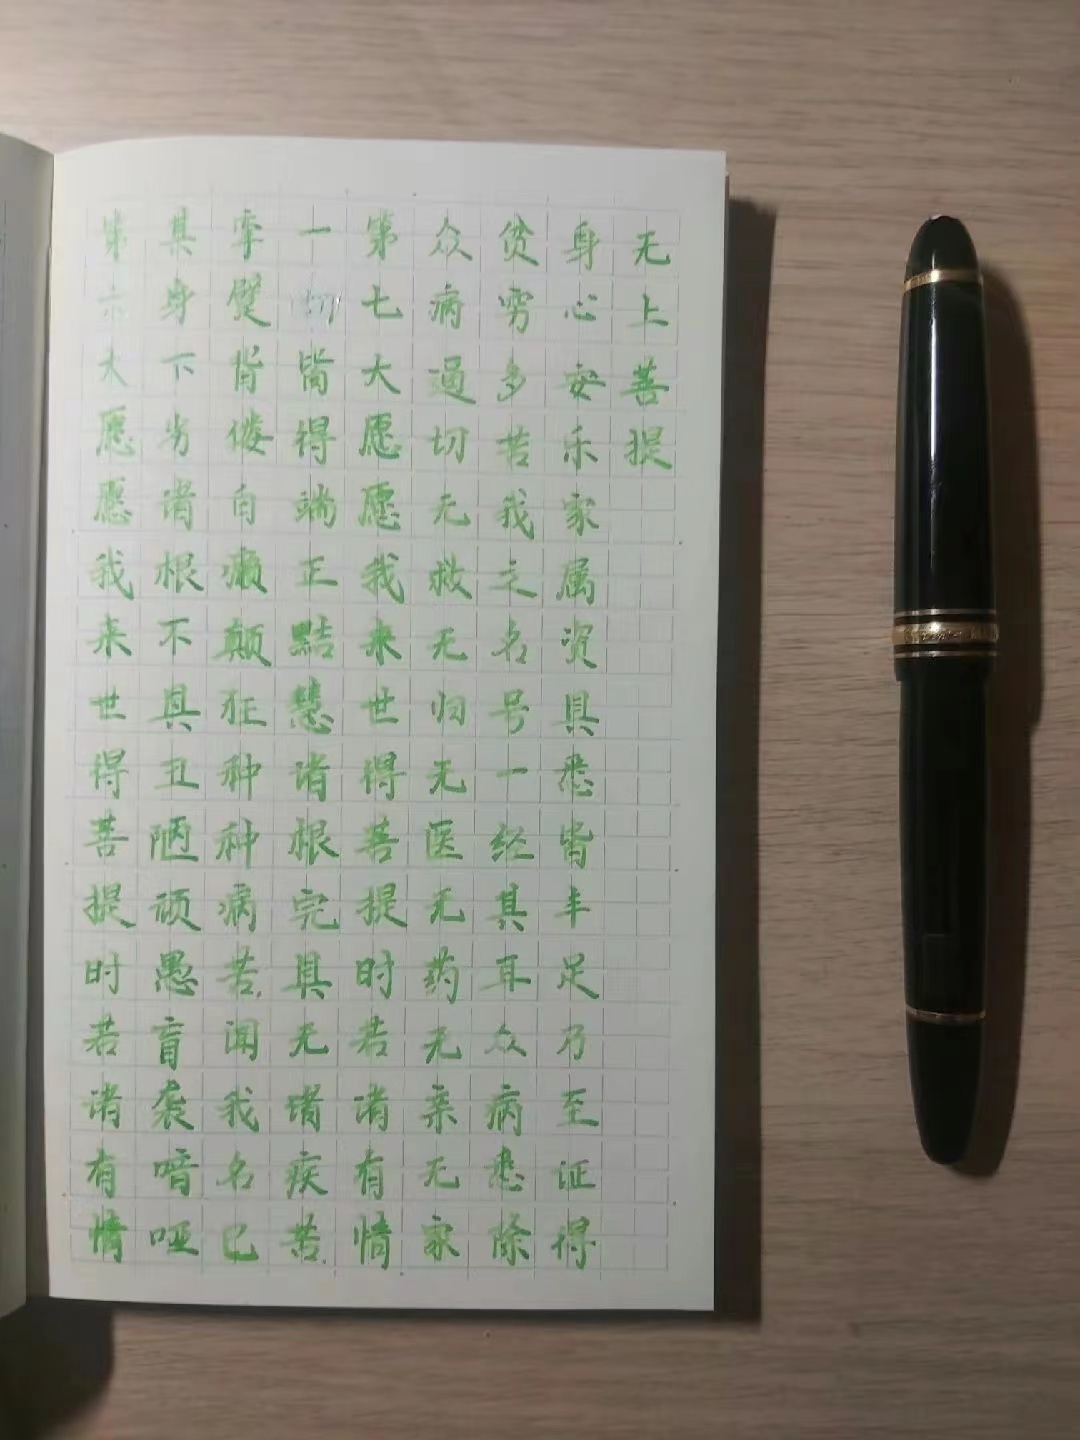 第六大愿愿我来世得菩提时若诸有情
其身下劣诸根不具丑陋顽愚盲袭喑哑
挛躄背偻白癞颠狂种种病苦闻我名已
一切皆得端正黠慧诸根完具无诸疾苦
第七大愿愿我来世得菩提时若诸有情
众病逼切无救无归无医无药无亲无家
贫穷多苦我之名号一经其耳众病悉除
身心安乐家属资具悉皆丰足乃至证得
无上菩提